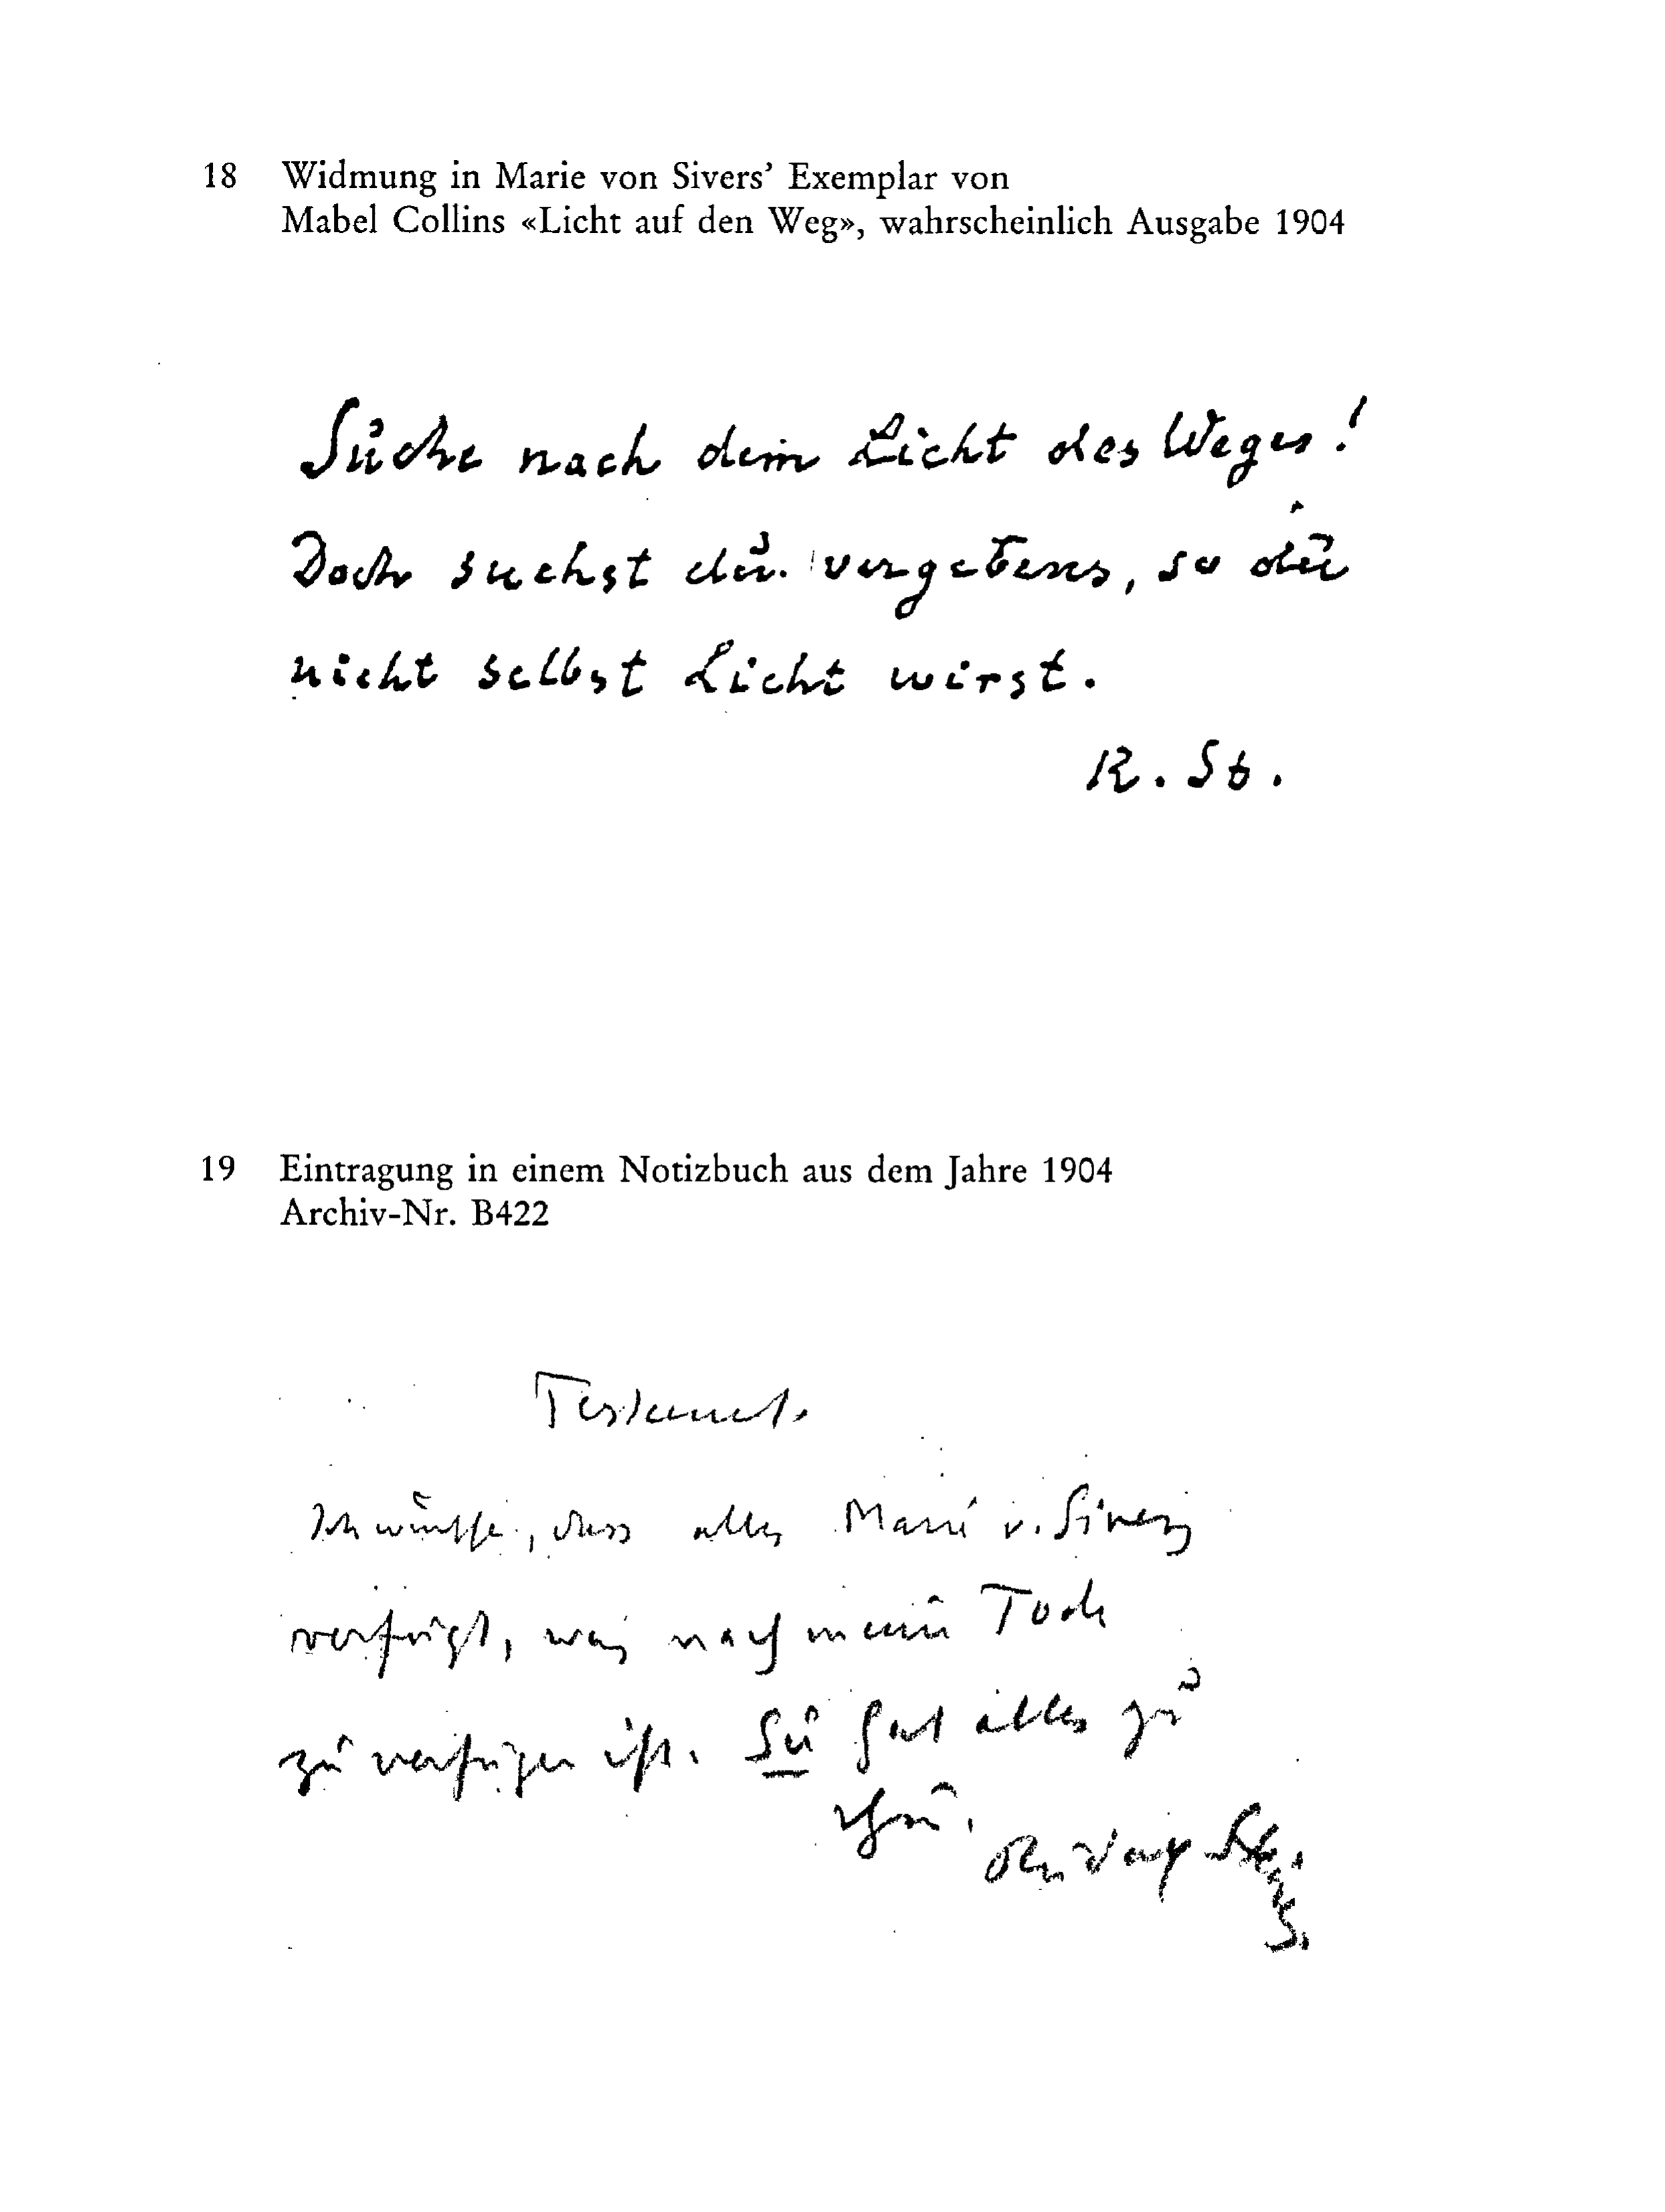 18 Widmung in Marie von Sivers' Exemplar von
Mabel Collins «Licht auf den Weg», wahrscheinlich Ausgabe 1904
Suche nach dem Licht des Weges!
Doch suchst du vergebens, so du
nicht selbst Licht wirst.
R. St.
19 Eintragung in einem Notizbuch aus dem Jahre 1904
Archiv-Nr. B422
Testament.
Ich wünsche, dass alles Marie v. Sivers
verfügt, was nach meinem Tode
zu verfügen ist. Sie hat alles zu
thun.
Rudolf Steiner.